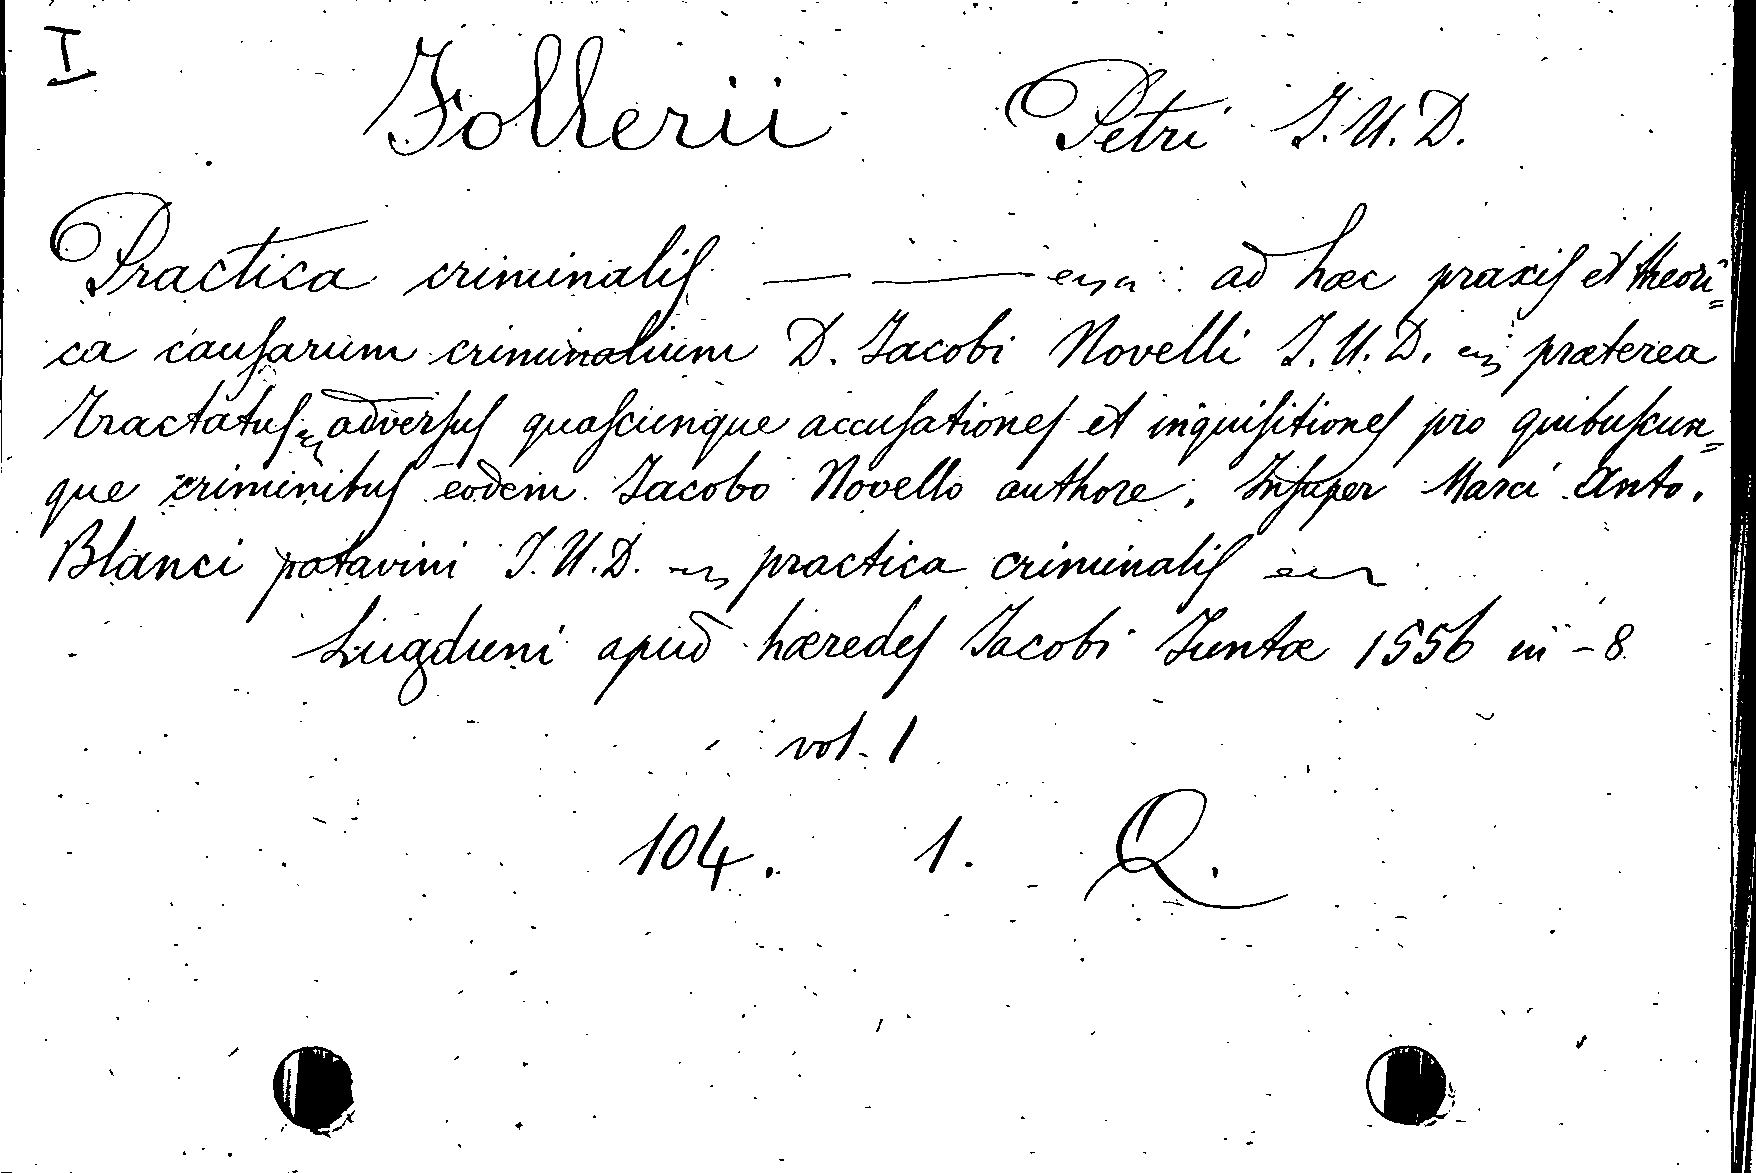 I
Follerii Petri I.U.D.
Practica criminalis — — ad hæc praxis et theori=
ca causarum criminalium D. Jacobi Novelli I.U.D. præterea
Tractatus adversus quascunque accusationes et inquisitiones pro quibuscun=
que criminibus eodem Jacobo Novello authore. Insuper Marci Anto.
Blanci patavini I.U.D. practica criminalis
Lugduni apud hæredes Jacobi Juntæ 1556 in-8
vol. 1
104. 1. Q.